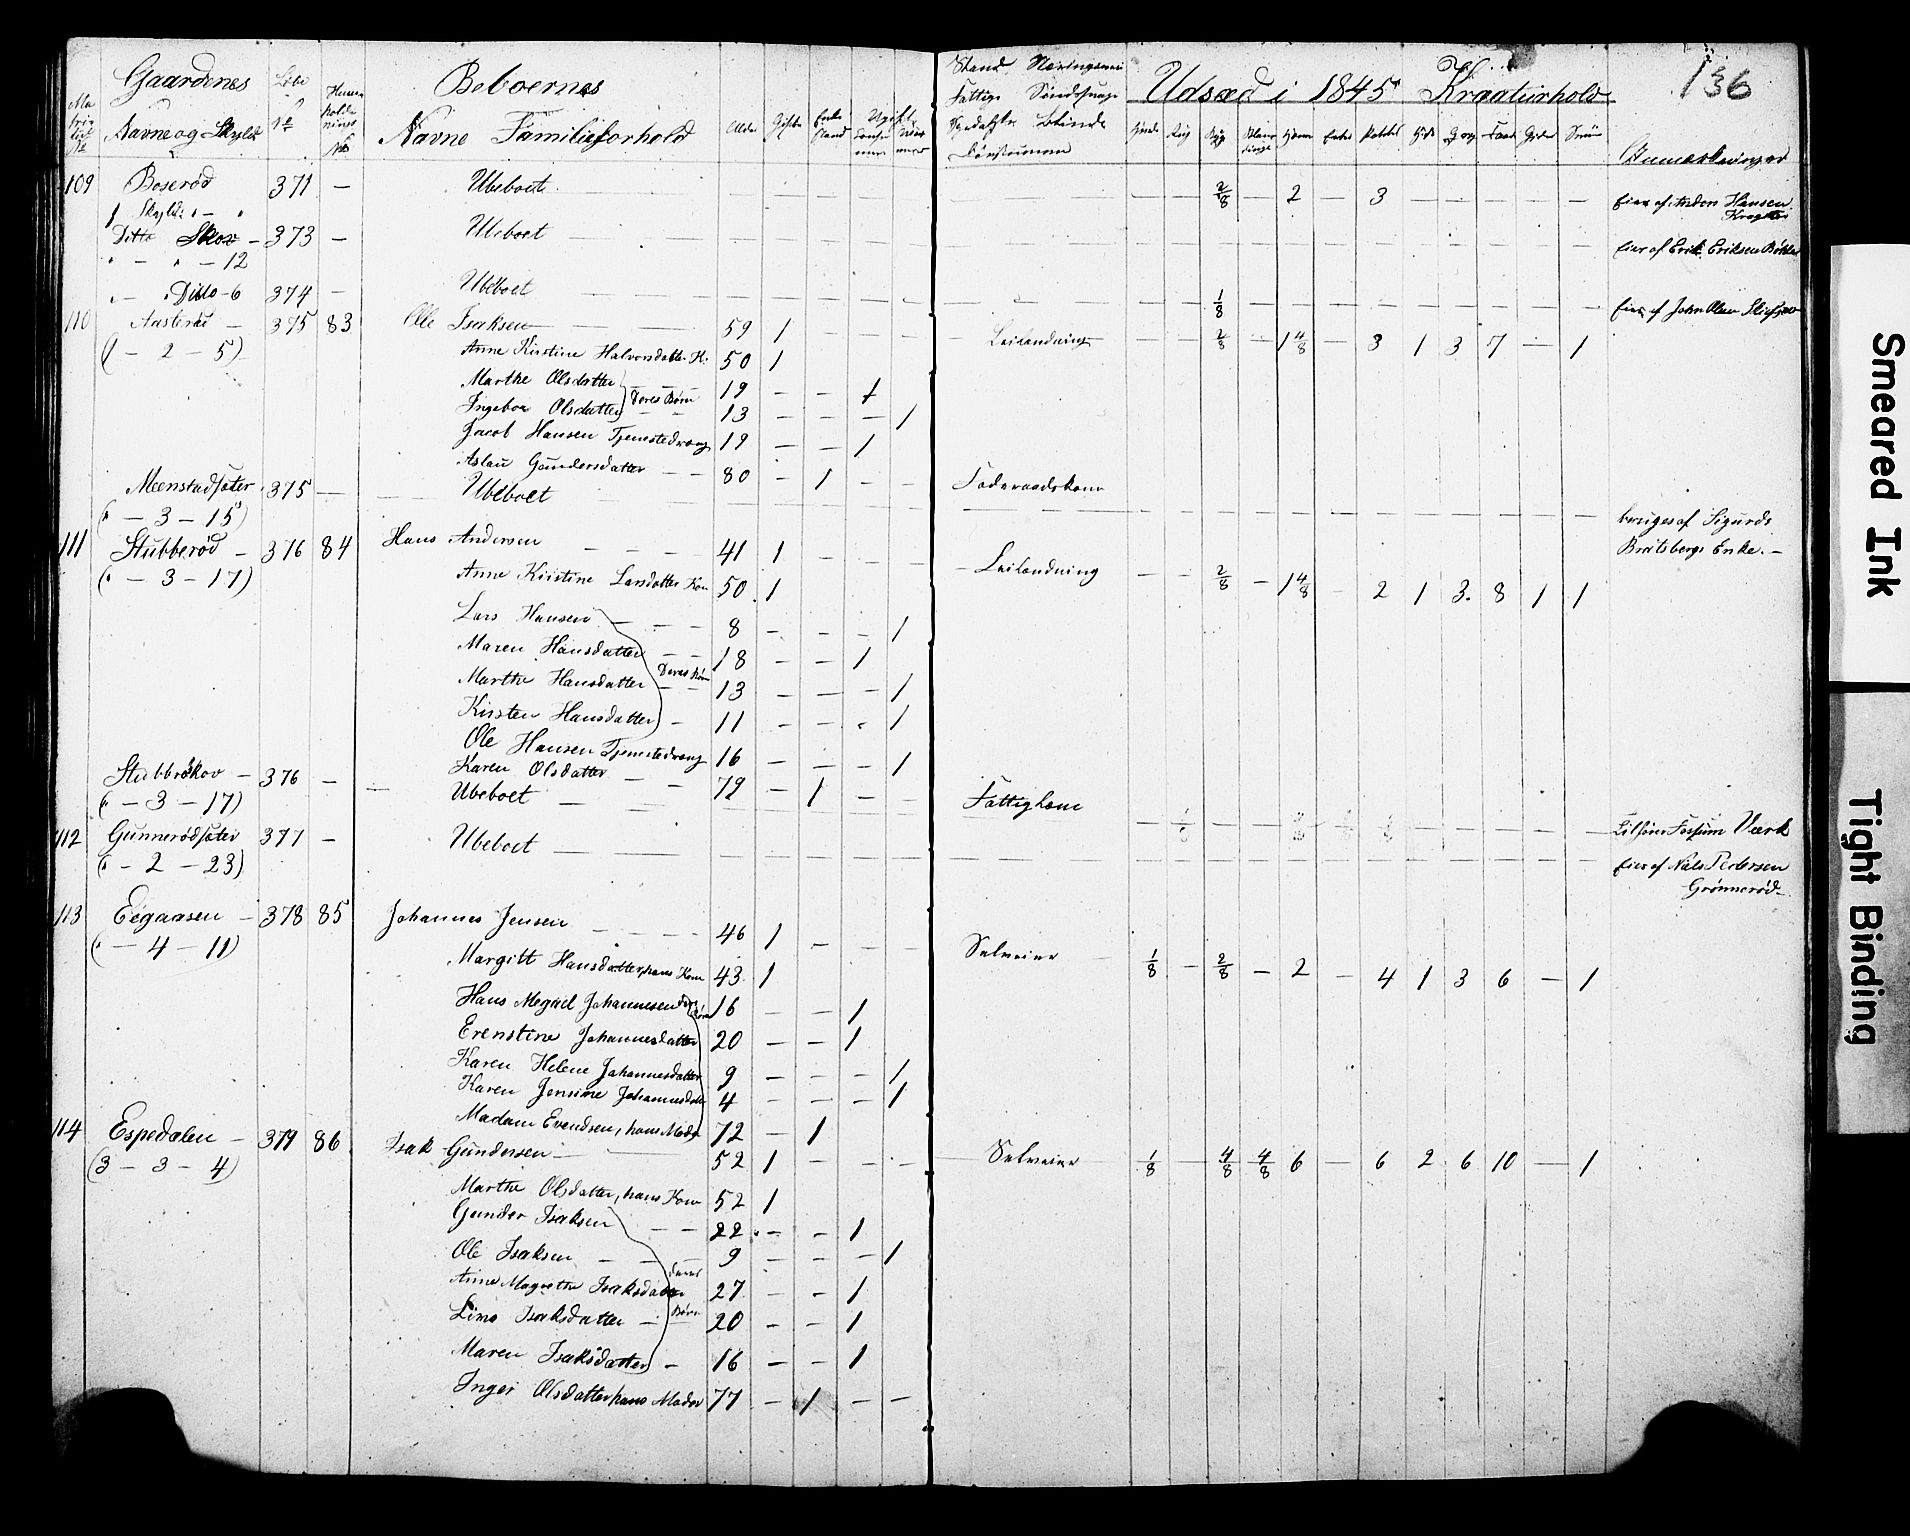 136
Gaardenes
Navne og Skyld
Beboernes
Navne Familieforhold
Alder Gifte
Stand Næringsvei
Fattige
Udsæd i 1845 Kreaturhold
Anmærkninger
109 Boserød 371 — Ubeboet — — 2/8 — 2 — 3 — — — — — Eier af Anders Hansen
Skyld
Ditto Skov — 373 — Ubeboet Eier af Erik Eriksen
" — " — 12
" — " Ditto — 6 374 — Ubeboet — — 1/8 Eier af John Olsen
110 Aasterød — 375 83 Ole Isaksen 59 1 Leilændning — — 2/8 — 1 4/8 — 3 1 3 7 — 1
( — 2 — 5)
Anne Kirstine Halvorsdatter H. 50 1
Marthe Olsdatter Deres Børn 19 — — 1
Ingebor Olsdatter 13 — — — 1
Jacob Hansen Tjenestedreng 19 — — 1
Aslau Gundersdatter — — 80 — 1 — — Foderaadskone
Meenstadsæter 375 — Ubeboet bruges af Sigurds
(" — 3 — 15) Bratsbergs Enke. —
111 Stubberød — 376 84 Hans Andersen 41 1 Leilændning — — 2/8 — 1 4/8 — 2 1 3. 8 1 1
(" — 3 — 17)
Anne Kirstine Larsdatter Kone 50 1
Lars Hansen 8 — — — 1
Maren Hansdatter 18 — — 1
Marthe Hansdatter Deres Børn 13 — — — 1
Kirsten Hansdatter 11 — — — 1
Ole Hansen Tjenestedreng 16 — — — 1
Karen Olsdatter 79 — 1 — — Fattiglem
Stubbrøskov — 376 — Ubeboet Tilhører Fossum Værk
(" — 3 — 17)
112 Gunnerødsæter 377 — Ubeboet Eier af Niels Pedersen
(" — 2 — 23) Grønnerød
113 Eegaasen — 378 85 Johannes Jensen 46 1 Selveier 1/8 — 2/8 — 2 — 4 1 3 6 — 1
(" — 4 — 11)
Margitt Hansdatter, hans Kone 43 1
Hans Megael Johannesen 16 — — 1
Erenstine Johannesdatter 20 — — 1
Karen Helene Johannesdatter 9 — — — 1
Karen Jensine Johannesdatter 4 — — — 1
Madam Evendsen, hans Moder 72 — 1
114 Espedalen — 379 86 Isak Gundersen 52 1 — — — Selveier 1/8 — 4/8 4/8 6 — 6 2 6 10 — 1
(3 — 3 — 4)
Marthe Olsdatter, hans Kone 52 1
Gunder Isaksen 22 — — 1
Ole Isaksen 9 — — — 1
Anne Magrethe Isaksdatter deres 27 — — 1
Lino Isaksdatter Børn 20 — — 1
Maren Isaksdatter — 16 — — 1
Inger Olsdatter hans Moder 77 — 1 — —
Smeared Ink
Tight Binding